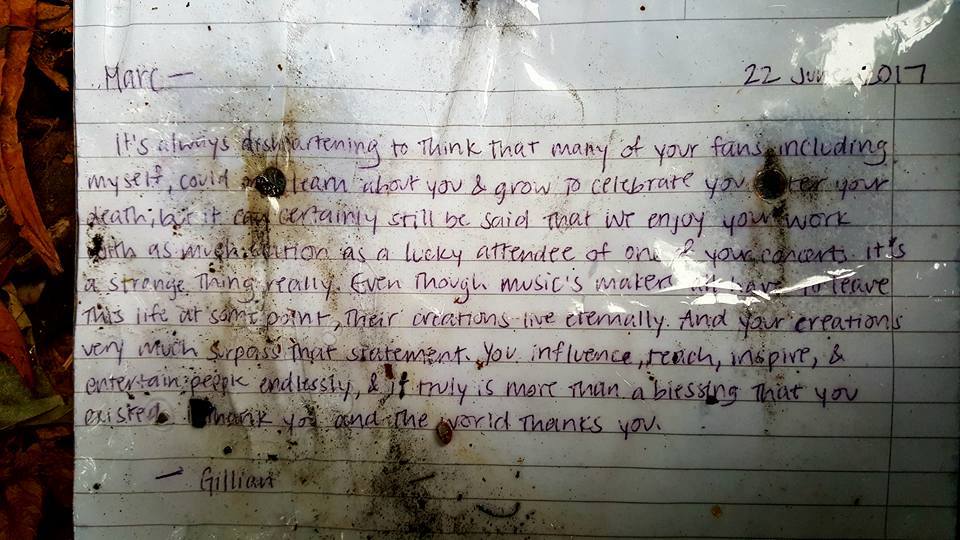 Marc — 22 June 2017
It's always disheartening to think that many of your fans, including
myself, could only learn about you & grow to celebrate you after your
death, but it can certainly still be said that we enjoy your work
with as much as a lucky attendee of one of your concerts. It's
a strange thing really. Even though music's makers all have to leave
this life at some point, their creations live eternally. And your creations
very much surpass that statement. You influence, reach, inspire, &
entertain people endlessly, & it truly is more than a blessing that you
existed. Thank you and the world thanks you.
— Gillian